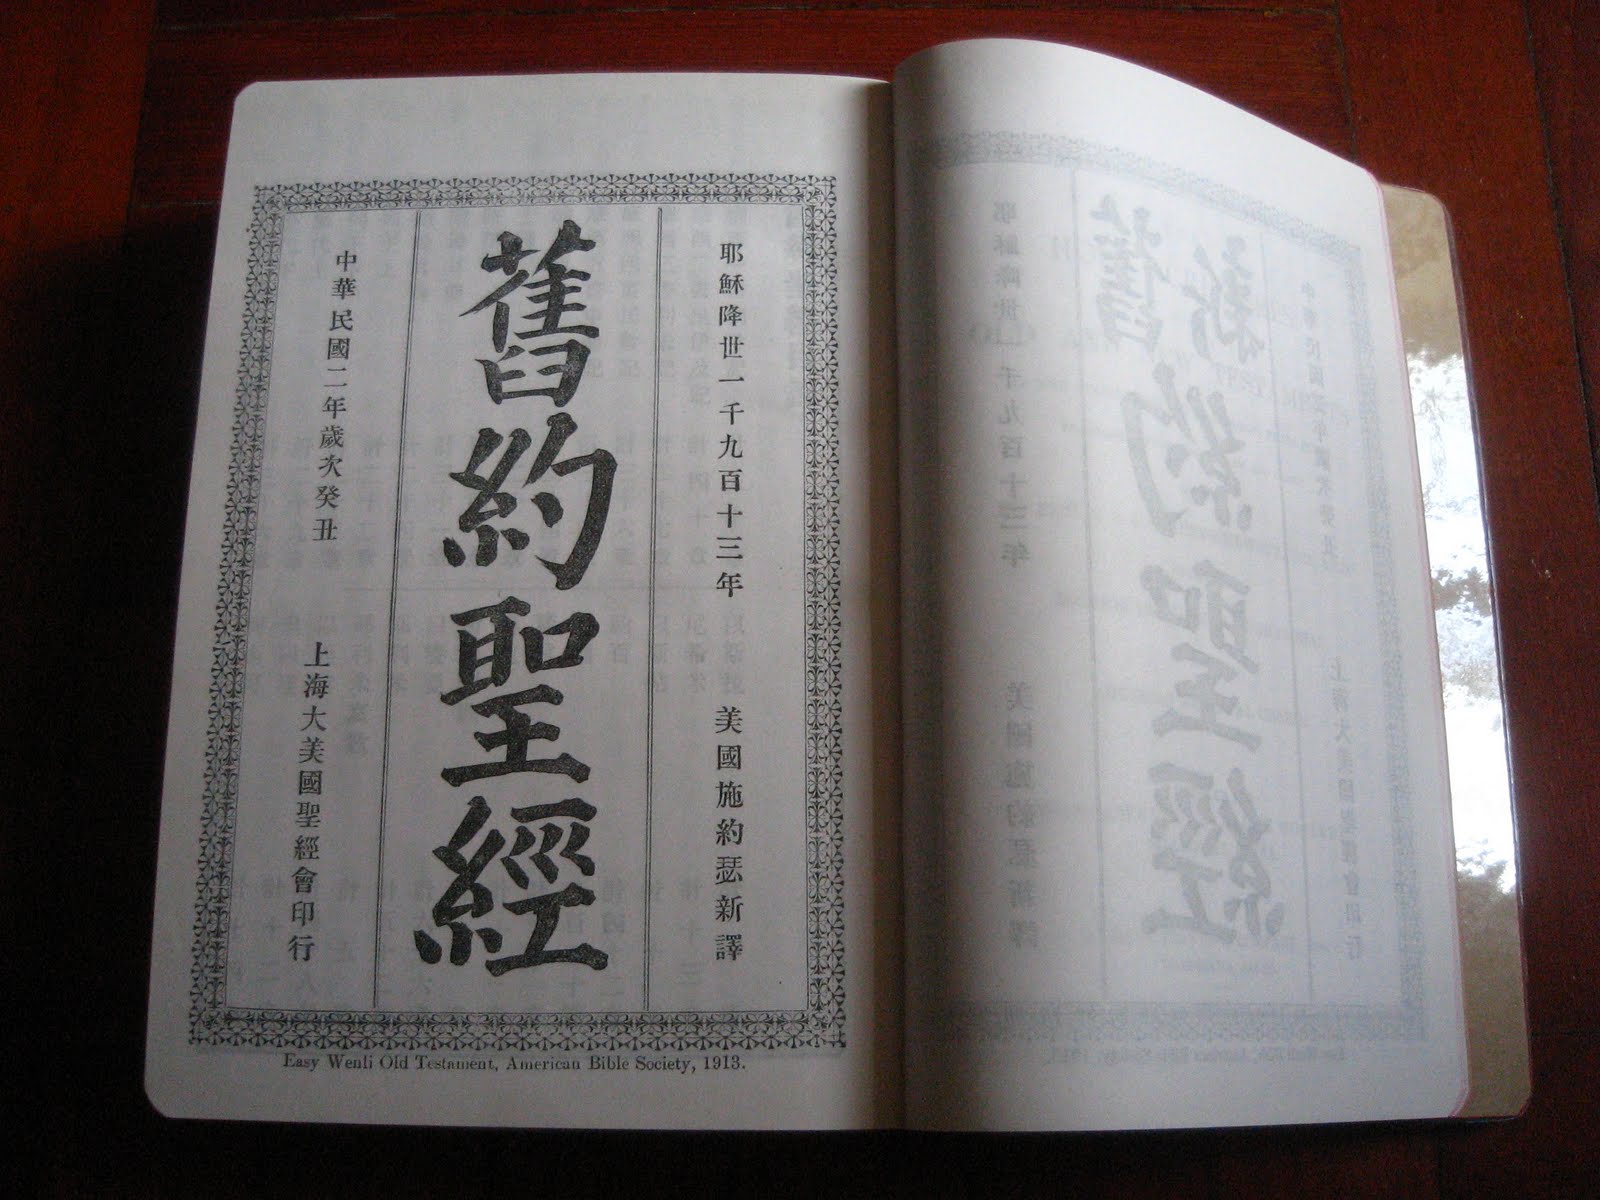 耶穌降世一千九百十三年 美國施約瑟新譯
舊約聖經
中華民國二年歲次癸丑 上海大美國聖經會印行
Easy Wenli Old Testament, American Bible Society, 1913.